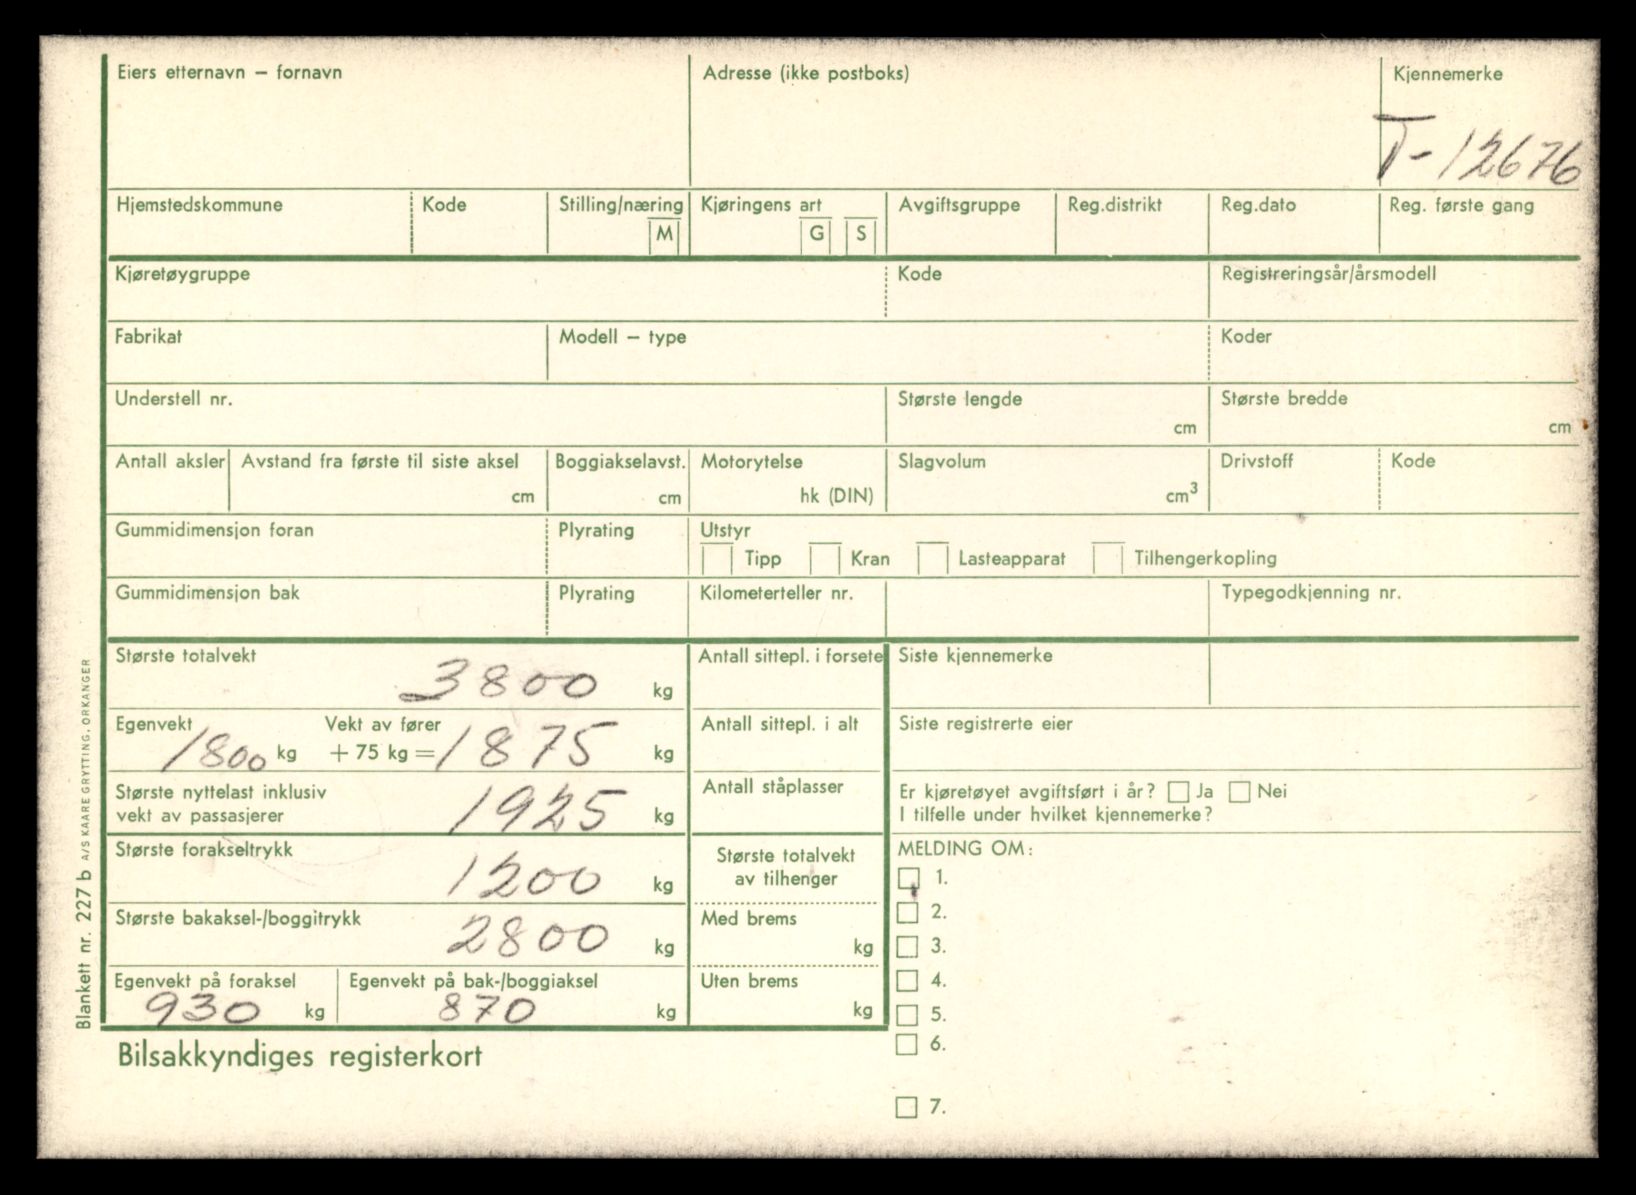 Eiers etternavn – fornavn
Adresse (ikke postboks)
Kjennemerke
T-12676
Hjemstedskommune
Kode
Stilling/næring
M
Kjøringens art
G S
Avgiftsgruppe
Reg.distrikt
Reg.dato
Reg. første gang
Kjøretøygruppe
Kode
Registreringsår/årsmodell
Fabrikat
Modell – type
Koder
Understell nr.
Største lengde
cm
Største bredde
cm
Antall aksler
Avstand fra første til siste aksel
cm
Boggiakselavst.
cm
Motorytelse
hk (DIN)
Slagvolum
cm³
Drivstoff
Kode
Gummidimensjon foran
Plyrating
Utstyr
Tipp Kran Lasteapparat Tilhengerkopling
Gummidimensjon bak
Plyrating
Kilometerteller nr.
Typegodkjenning nr.
Største totalvekt
3800 kg
Egenvekt
1800 kg
Vekt av fører
+ 75 kg = 1875 kg
Største nyttelast inklusiv
vekt av passasjerer
1925 kg
Største forakseltrykk
1200 kg
Største bakaksel-/boggitrykk
2800 kg
Egenvekt på foraksel
930 kg
Egenvekt på bak-/boggiaksel
870 kg
Antall sittepl. i forsete
Antall sittepl. i alt
Antall ståplasser
Største totalvekt
av tilhenger
Med brems
kg
Uten brems
kg
Siste kjennemerke
Siste registrerte eier
Er kjøretøyet avgiftsført i år? Ja Nei
I tilfelle under hvilket kjennemerke?
MELDING OM:
1.
2.
3.
4.
5.
6.
7.
Bilsakkyndiges registerkort
Blankett nr. 227 b A/S KAARE GRYTTING, ORKANGER